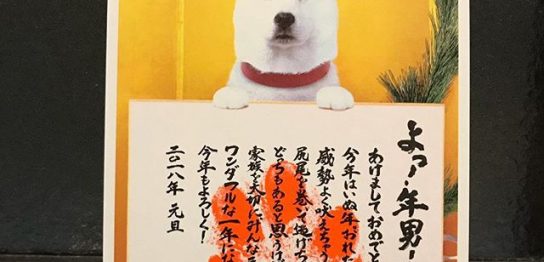 よっ!年男!
あけましておめでと
今年はいぬ年。おれた
威勢よく吠えちゃう
尻尾を巻いて逃げち
どっちもあると思うけ
家族を大切にみんな
ワンダフルな一年にな
今年もよろしく!
二〇一八年 元旦